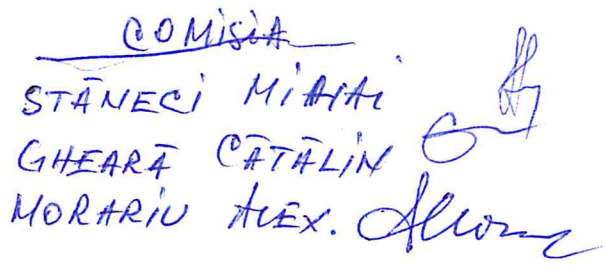 COMISIA
STĂNECI MIHAI
GHEARĂ CĂTĂLIN
MORARIU ALEX.